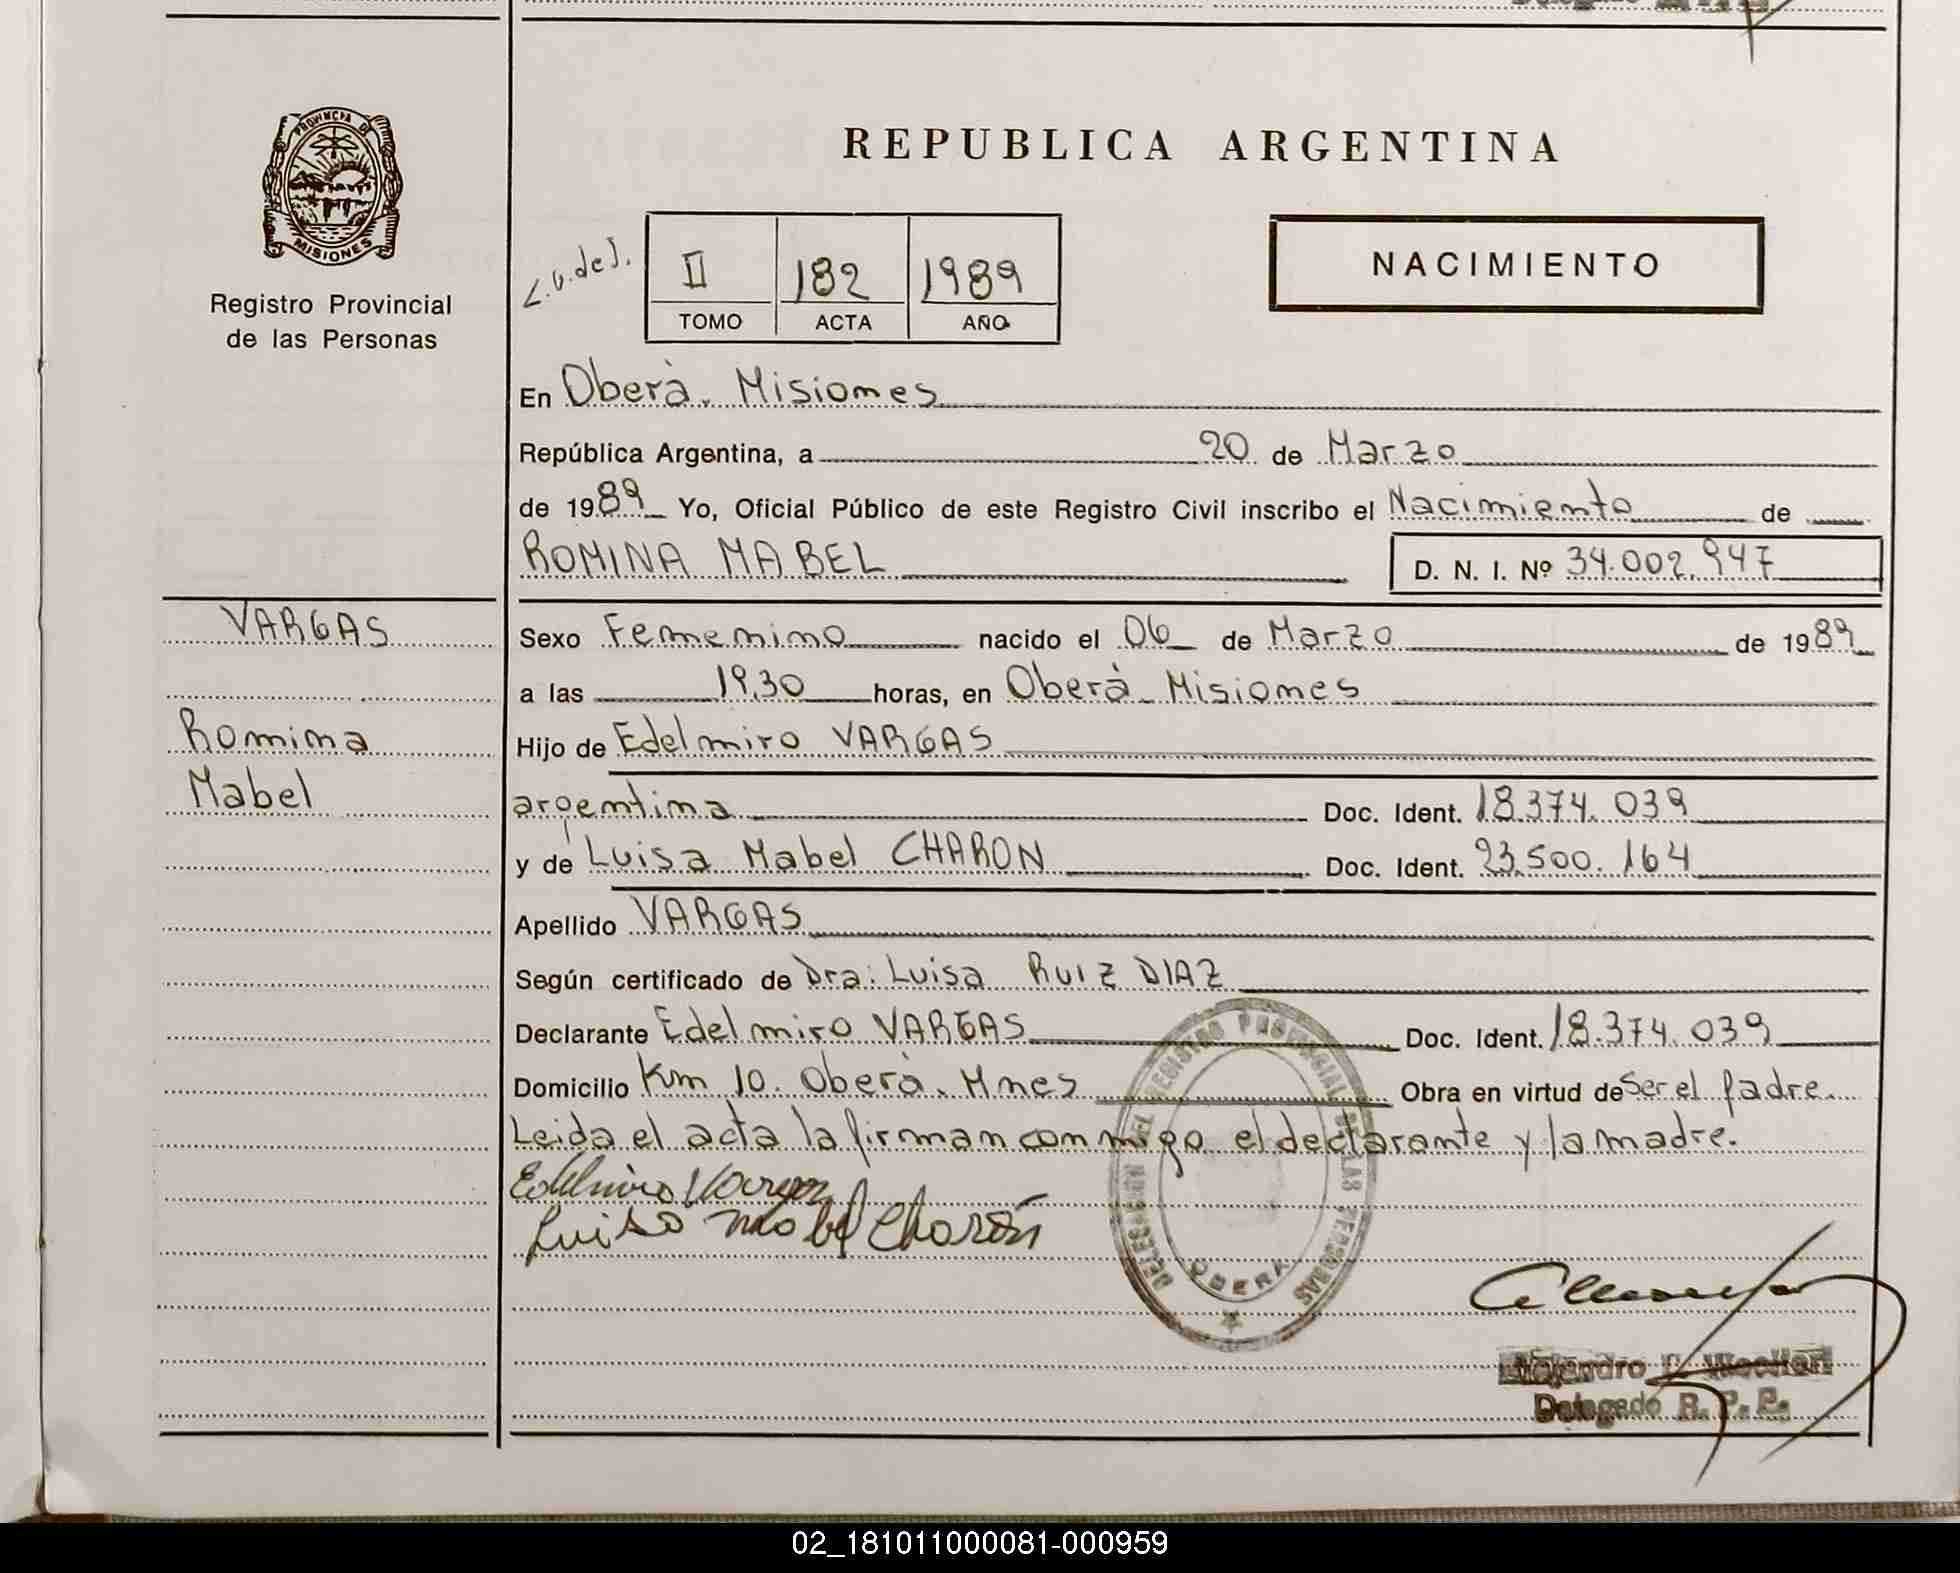 PROVINCIA DE
MISIONES
Registro Provincial
de las Personas
REPUBLICA ARGENTINA
II 182 1989
TOMO ACTA AÑO
NACIMIENTO
En Oberà. Misiones
República Argentina, a 20 de Marzo
de 1989 Yo, Oficial Público de este Registro Civil inscribo el Nacimiento de
ROMINA MABEL D. N. I. Nº 34.002.947
VARGAS
Romina
Mabel
Sexo Femenino nacido el 06 de Marzo de 1989
a las 19,30 horas, en Oberà Misiones
Hijo de Edelmiro VARGAS
argentina Doc. Ident. 18.374.039
y de Luisa Mabel CHARON Doc. Ident. 23.500.164
Apellido VARGAS
Según certificado de Dra: Luisa RUIZ DIAZ
Declarante Edelmiro VARGAS Doc. Ident. 18.374.039
Domicilio Km 10. Oberà. Mnes Obra en virtud de Ser el padre.
Leida el acta la firman conmigo el declarante y la madre.
Edelmiro Vargas
Luisa Mabel Charón
DELEGACION DEL REGISTRO PROVINCIAL DE LAS PERSONAS
OBERA
Alejandro
Delegado R. P. P.
02_181011000081-000959